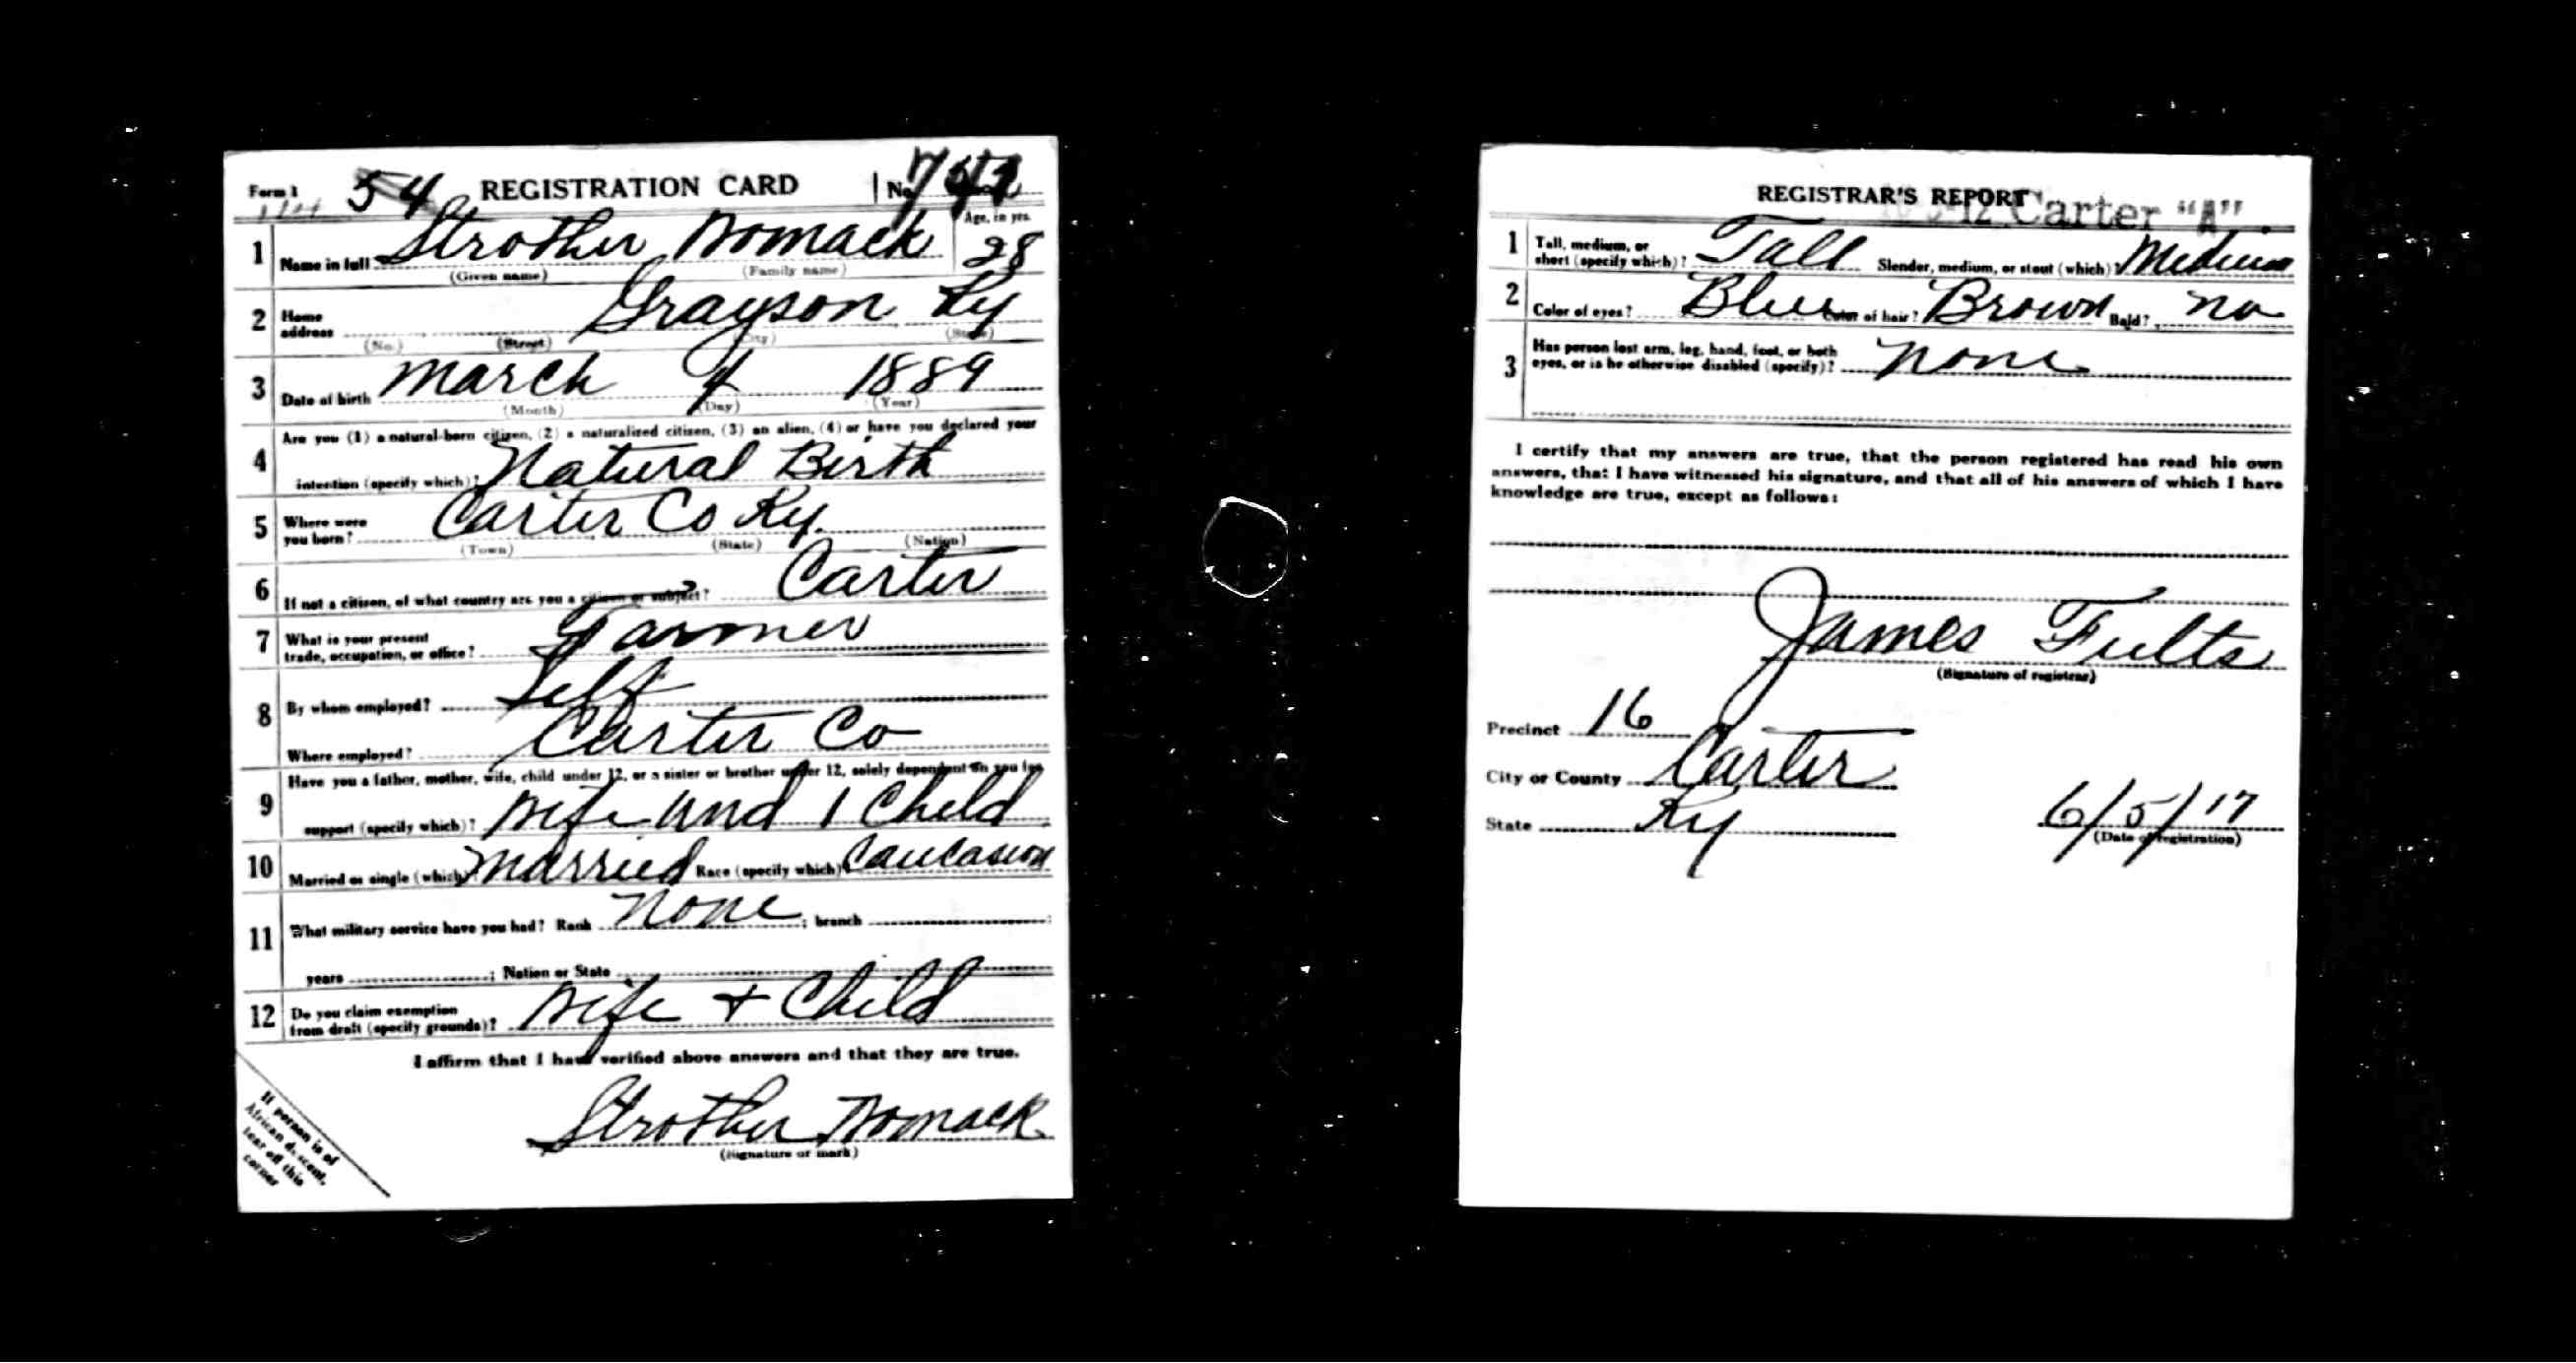 Form 1 54 REGISTRATION CARD No.
1 Name in full Strother Womack Age, in yrs. 28
(Given name) (Family name)
2 Home address Grayson Ky
(No.) (Street) (City) (State)
3 Date of birth March 4 1889
(Month) (Day) (Year)
4 Are you (1) a natural-born citizen, (2) a naturalized citizen, (3) an alien, (4) or have you declared your
intention (specify which)? Natural Birth
5 Where were you born? Carter Co Ky.
(Town) (State) (Nation)
6 If not a citizen, of what country are you a citizen or subject? Carter
7 What is your present trade, occupation, or office? Farmer
8 By whom employed? Self
Where employed? Carter Co
9 Have you a father, mother, wife, child under 12, or a sister or brother under 12, solely dependent on you for
support (specify which)? Wife and 1 Child
10 Married or single (which)? Married Race (specify which)? Caucasion
11 What military service have you had? Rank None ; branch ;
years ; Nation or State
12 Do you claim exemption from draft (specify grounds)? Wife + Child
I affirm that I have verified above answers and that they are true.
Strother Womack
(Signature or mark)
If person is of
African descent,
tear off this
corner
REGISTRAR'S REPORT Carter "A"
1 Tall, medium, or short (specify which)? Tall Slender, medium, or stout (which)? Medium
2 Color of eyes? Blue Color of hair? Brown Bald? No
3 Has person lost arm, leg, hand, foot, or both
eyes, or is he otherwise disabled (specify)? None
I certify that my answers are true, that the person registered has read his own
answers, that I have witnessed his signature, and that all of his answers of which I have
knowledge are true, except as follows:
James Fults
(Signature of registrar)
Precinct 16
City or County Carter
State Ky 6/5/17
(Date of registration)